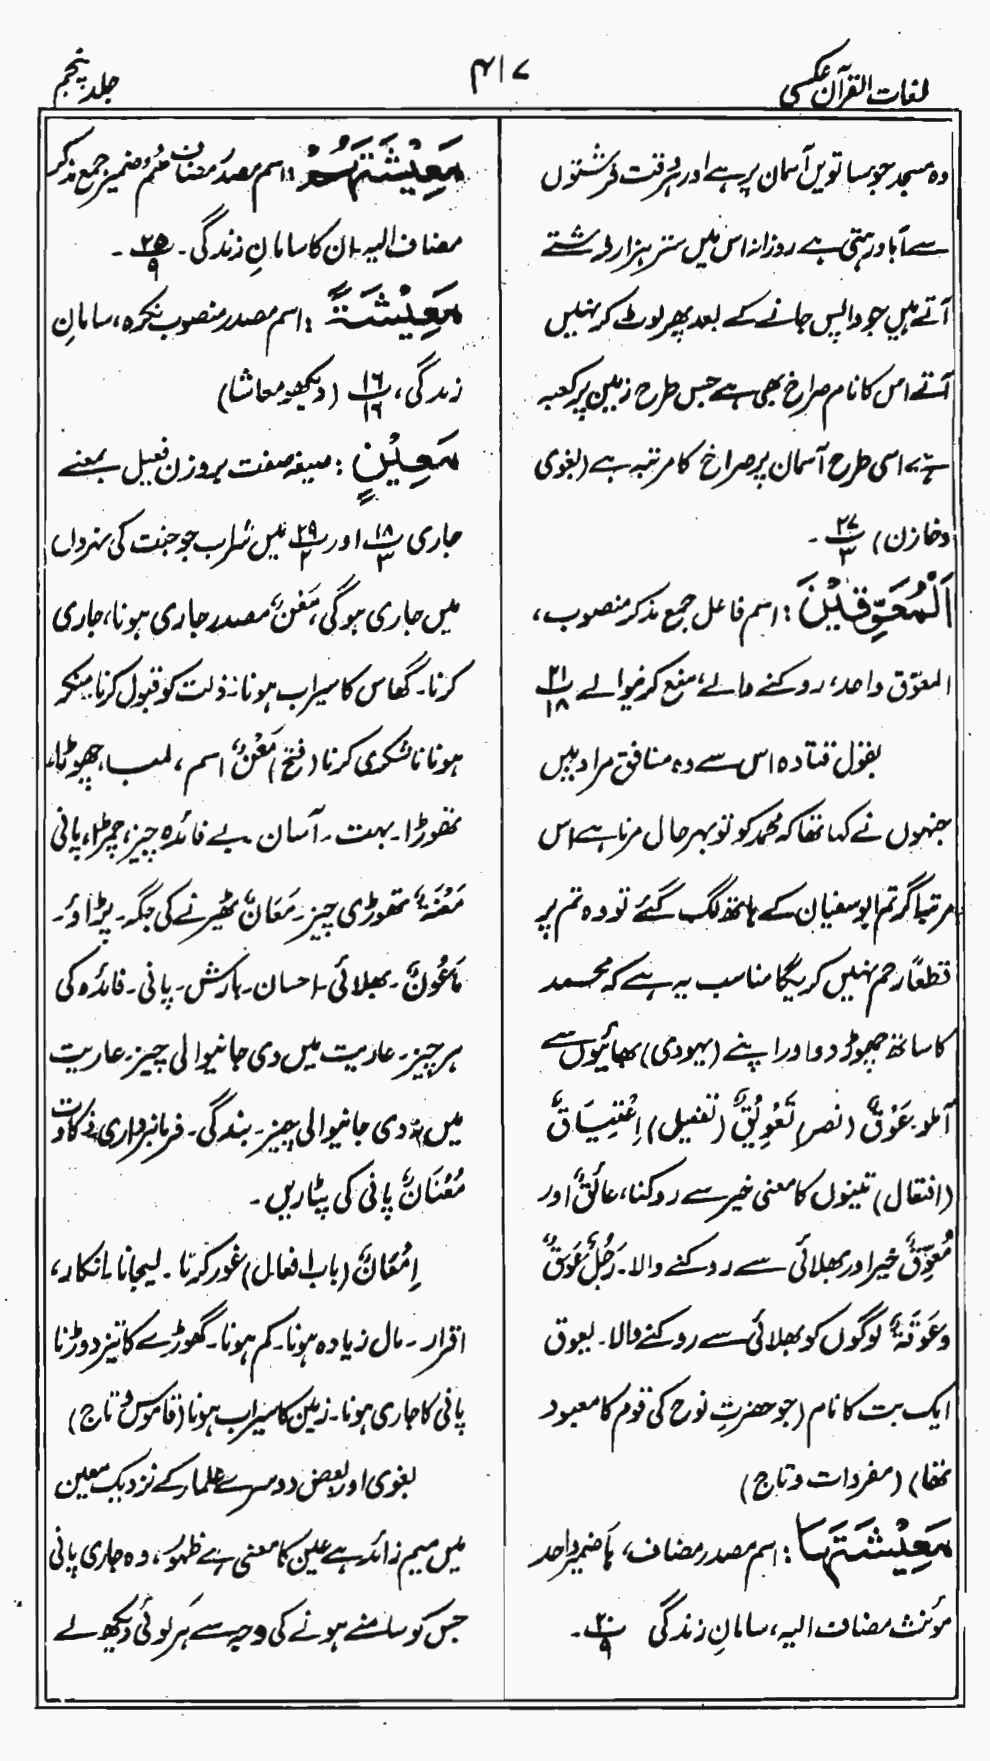 لغات القرآن عکسی
۴۱۷
جلد پنجم
وہ مسجد جو ساتویں آسمان پر ہے اور ہر وقت فرشتوں
سے آباد رہتی ہے روزانہ اس میں ستر ہزار فرشتے
آتے ہیں جو واپس جانے کے بعد پھر لوٹ کر نہیں
آتے اس کا نام صراخ بھی ہے جس طرح زمین پر کعبہ
ہے، اسی طرح آسمان پر صراخ کا مرتبہ ہے (بغوی
وخازن) ۲۷/۳ ۔
اَلْمُعَوِّقِیْنَ : اسم فاعل جمع مذکر منصوب،
المعوّق واحد، روکنے والے، منع کرنیوالے ۲۱/۱۸
بقول قتادہ اس سے وہ منافق مراد ہیں
جنہوں نے کہا تھا کہ محمد کو تو بہرحال مرنا ہے اس
مرتبہ اگر تم ابوسفیان کے ہاتھ لگ گئے تو وہ تم پر
قطعاً رحم نہیں کریگا مناسب یہ ہے کہ محمد
کا ساتھ چھوڑ دو اور اپنے (یہودی) بھائیوں سے
آملو۔ عَوْقٌ (نصر) تَعْوِیْقٌ (تفعیل) اِعْتِیَاقٌ
(افتعال) تینوں کا معنی خیر سے روکنا، عائقٌ اور
مُعَوِّقٌ خیر اور بھلائی سے روکنے والا۔ رَجُلٌ عَوَقٌ
وعَوَقَۃٌ لوگوں کو بھلائی سے روکنے والا۔ یعوق
ایک بت کا نام (جو حضرتِ نوح کی قوم کا معبود
تھا) (مفردات وتاج)
مَعِیْشَتَہَا : اسم مصدر مضاف، ہا ضمیر واحد
مؤنث مضاف الیہ، سامانِ زندگی ۲۰/۹ ۔
مَعِیْشَتَہُمْ : اسم مصدر مضاف ہم ضمیر جمع مذکر
مضاف الیہ۔ ان کا سامانِ زندگی ۔ ۲۵/۹ ۔
مَعِیْشَۃً : اسم مصدر منصوب نکرہ، سامانِ
زندگی، ۱۶/۱۶ (دیکھو معاشا)
مَعِیْنٍ : صیغہ صفت بروزن فعیل بمعنے
جاری ۱۸/۳ اور ۲۹/۲ میں شراب جو جنت کی نہروں
میں جاری ہوگی، مَعْنٌ مصدر جاری ہونا، جاری
کرنا۔ گھاس کا سیراب ہونا۔ ذلت کو قبول کرنا منکر
ہونا ناشکری کرنا (فتح) مَعْنٌ اسم، لمب، چھوٹا،
تھوڑا۔ بہت ۔ آسان بے فائدہ چیز، چمڑا، پانی
مَعْنَۃٌ تھوڑی چیز۔ مَعَانٌ ٹھیرنے کی جگہ۔ پڑاؤ۔
مَاعُوْنٌ ۔ بھلائی۔ احسان۔ بارش۔ پانی۔ فائدہ کی
ہر چیز۔ عاریت میں دی جانیوالی چیز۔ عاریت
میں نہ دی جانیوالی چیز۔ بندگی۔ فرمانبرداری، زکات
مُعْنَانٌ پانی کی پٹاریں ۔
اِمْعَانٌ (باب افعال) غور کرنا ۔ لیجانا۔ انکار،
اقرار ۔ مال زیادہ ہونا۔ کم ہونا۔ گھوڑے کا تیز دوڑنا
پانی کا جاری ہونا۔ زمین کا سیراب ہونا (قاموس وتاج)
بغوی اور بعض دوسرے علماء کے نزدیک معین
میں میم زائد ہے عین کا معنی ہے ظہور، وہ جاری پانی
جس کو سامنے ہونے کی وجہ سے ہر کوئی دیکھ لے